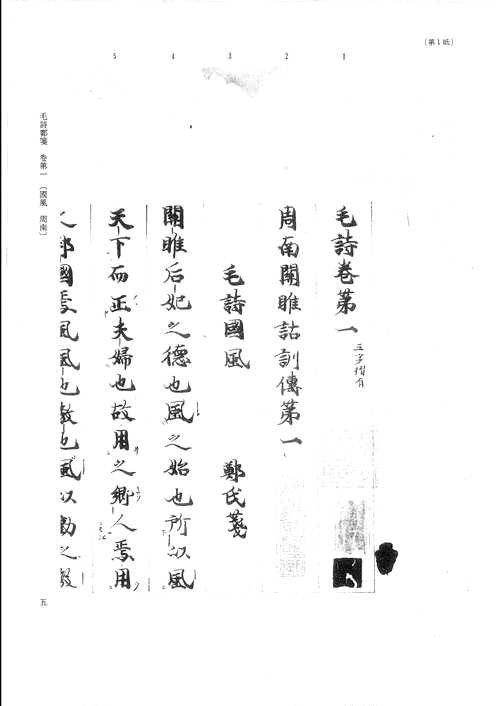 （第1紙）
1
2
3
4
5
毛詩卷第一
三字摺有
周南關雎詁訓傳第一
毛詩國風 鄭氏箋
關雎后妃之德也風之始也所以風
天下而正夫婦也故用之鄉人焉用
之邦國焉風風也教也風以動之教
毛詩鄭箋 卷第一 〔國風 周南〕
五